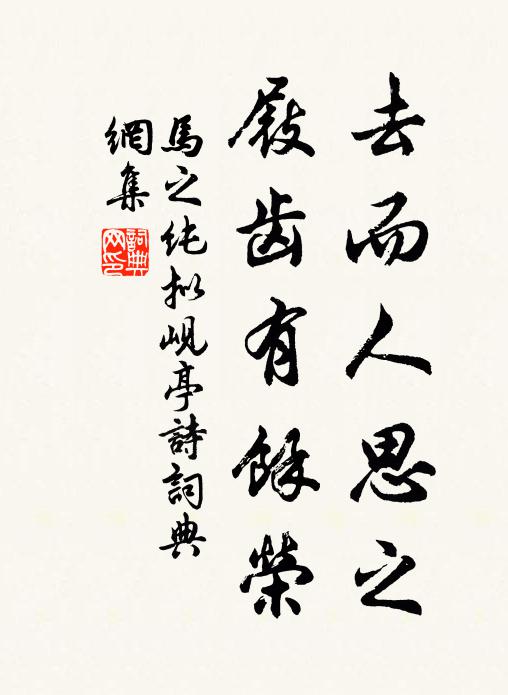 去而人思之
屐齿有餘榮
馬之纯拟岘亭詩詞典
網集
詞典
网印